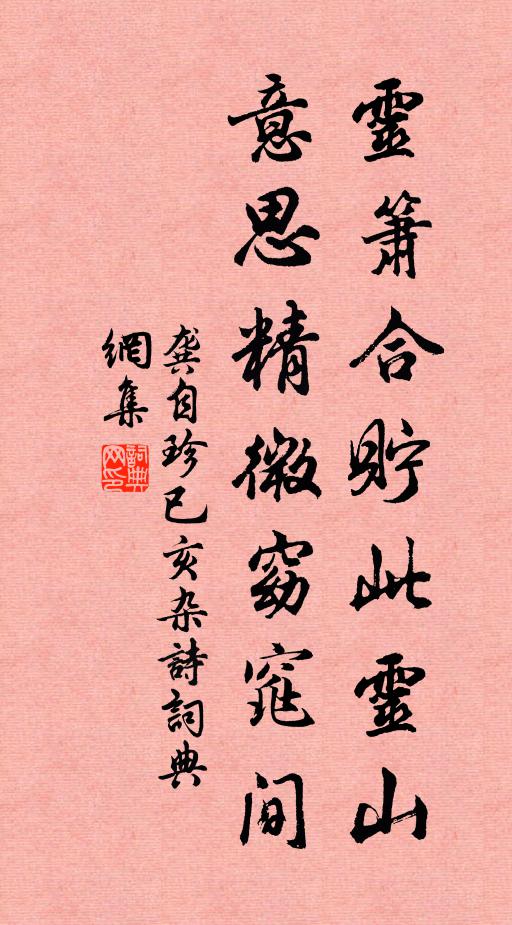 靈簫合貯此靈山
意思精微窈窕间
龚自珍已亥杂詩詞典
網集
詞典
网印